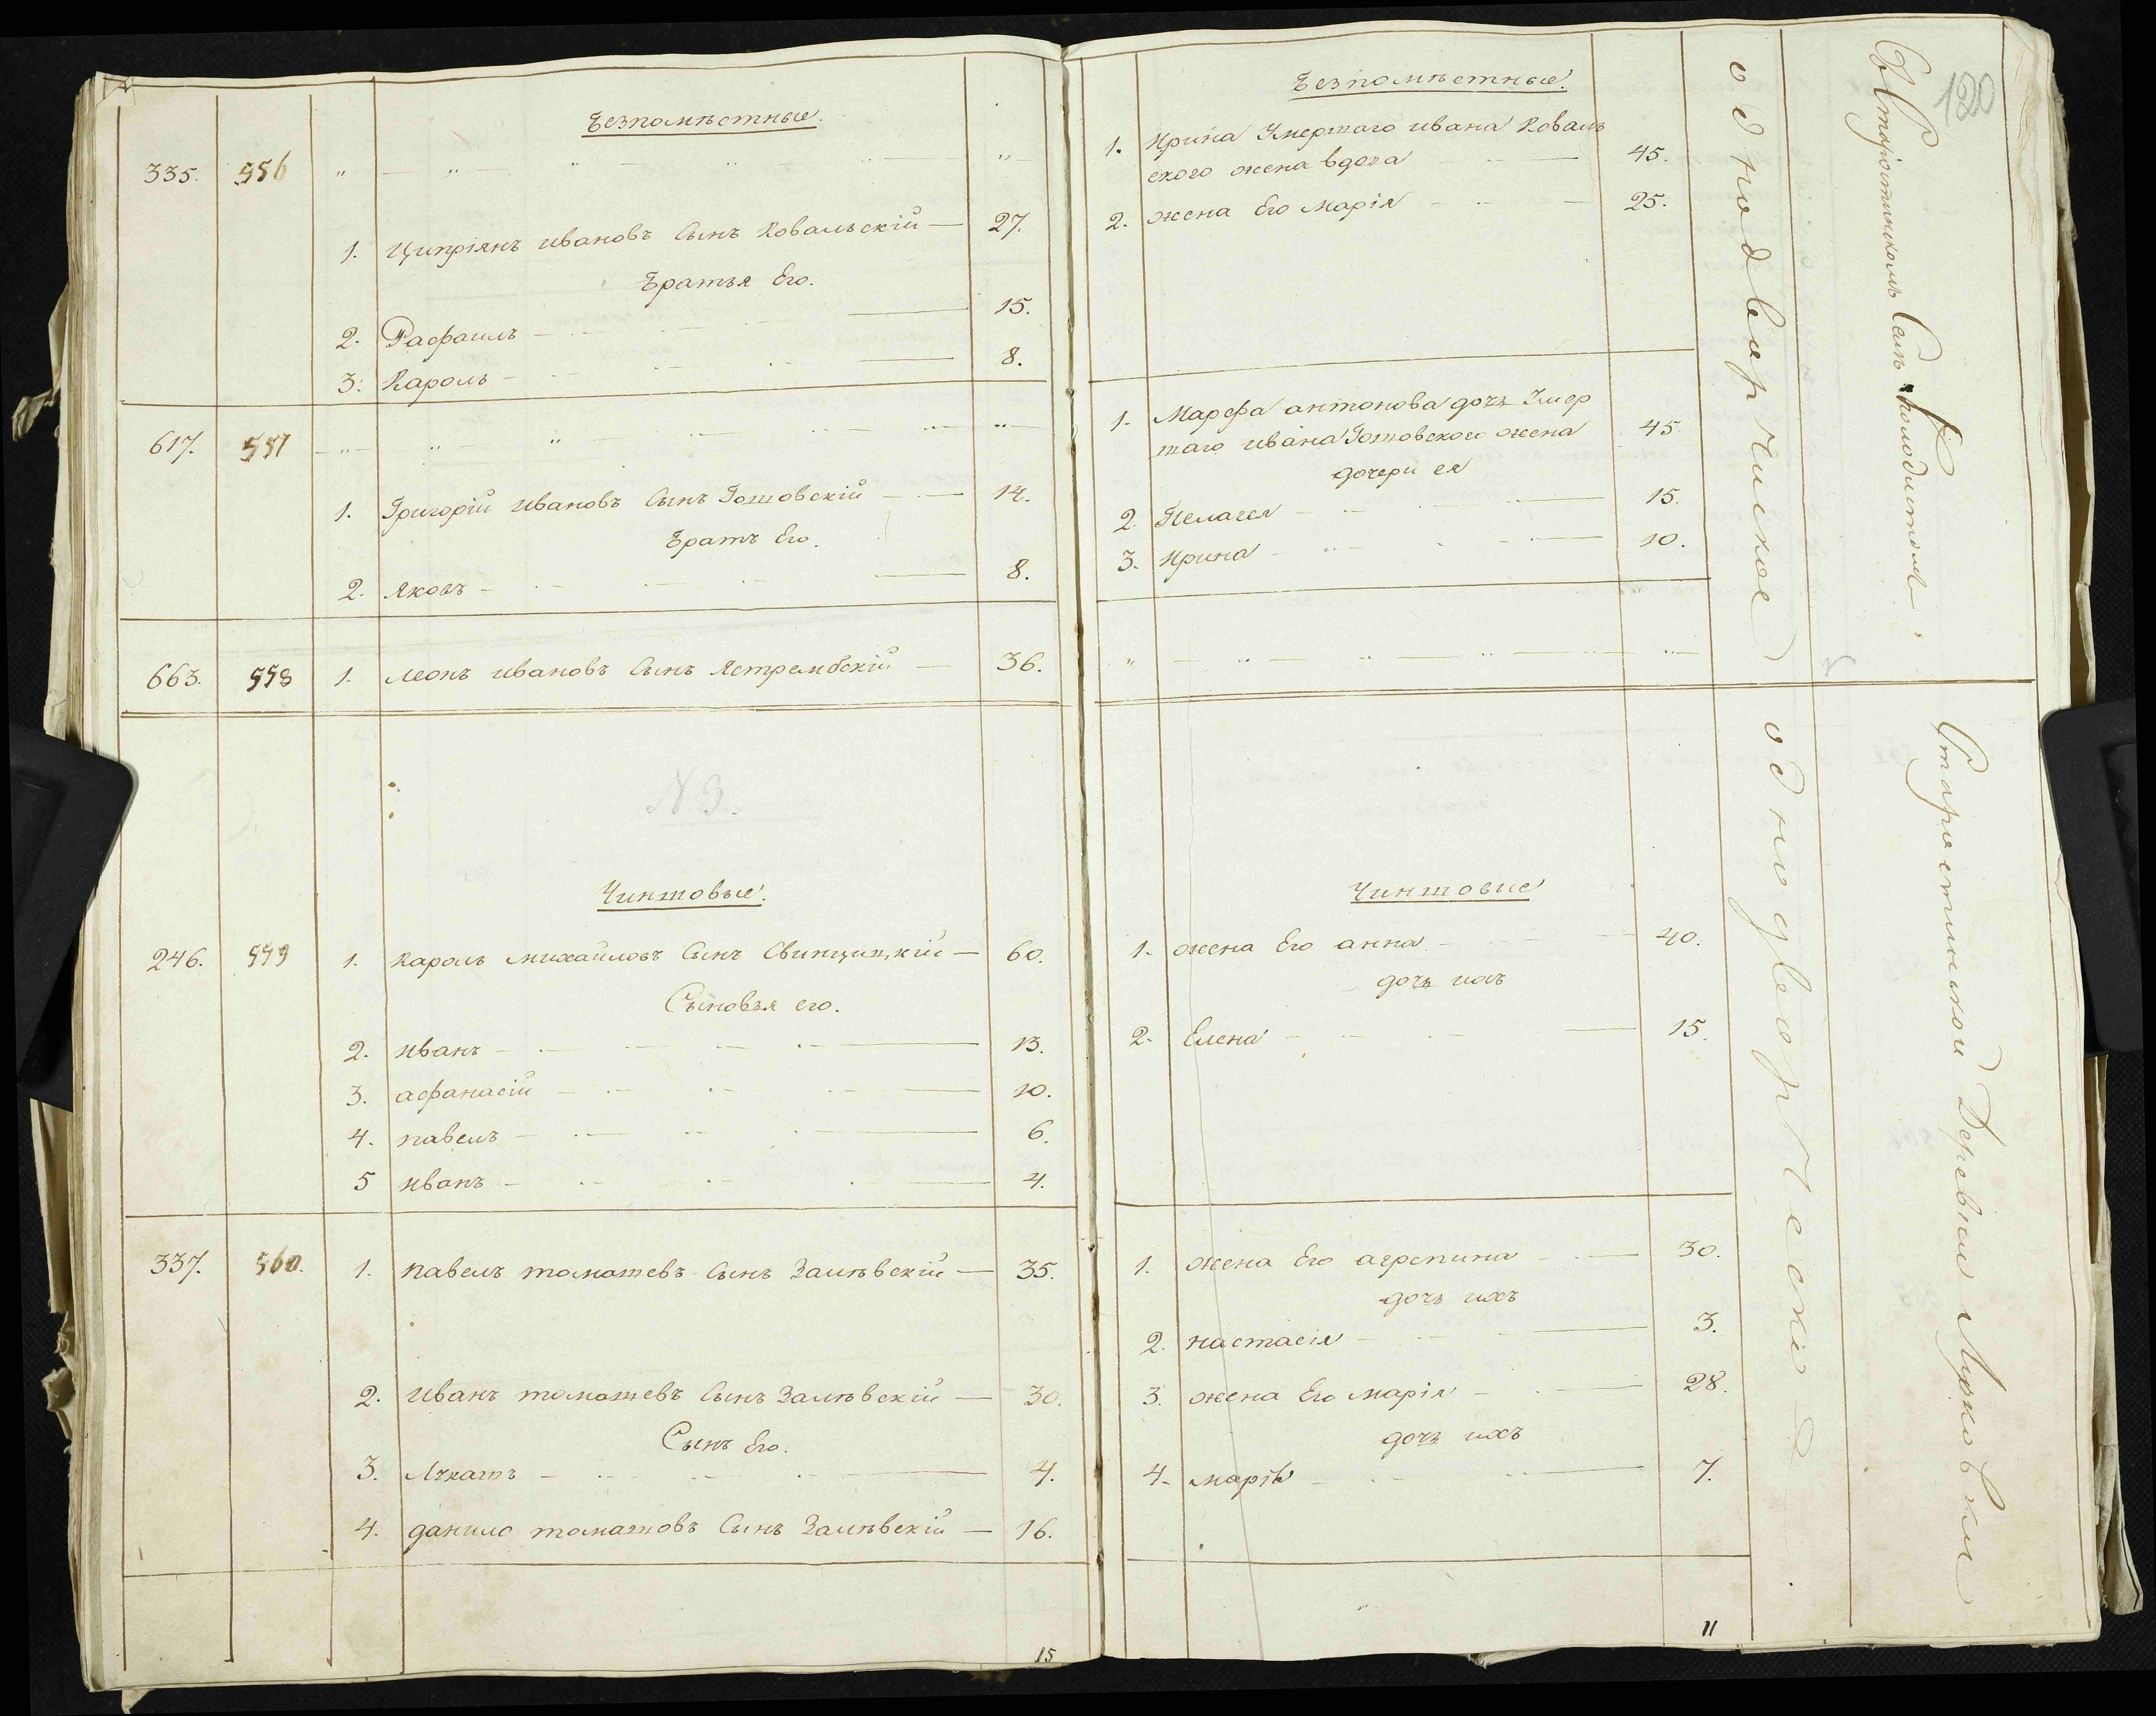 Безпоместные.
335. 556 " — " — " — " — " — "
1. Циприянъ ивановъ Сынъ Ковальскій — 27.
Братья Его.
2. Рафаилъ — 15.
3. Кароль — 8.
617. 557 " — " — " — " — " — "
1. Григорій ивановъ Сынъ Готовскій — 14.
Братъ Его.
2. Яковъ — 8.
663. 558 1. Леонъ ивановъ Сынъ Ястрембскій — 36.
N. 3.
Чиншовые.
246. 559 1. Кароль михайловъ Сынъ Свинцицкій — 60.
Сыновья его.
2. иванъ — 13.
3. афанасій — 10.
4. павелъ — 6.
5 иванъ — 4.
337. 560. 1. павелъ томашевъ Сынъ Залѣвскій — 35.
2. иванъ томашевъ Сынъ Залѣвскій — 30.
Сынъ Его.
3. — 4.
4. данило томашовъ Сынъ Залѣвскій — 16.
15
120
Безпомѣстные.
1. Ирина Умершаго ивана Коваль
скаго жена вдова — 45.
2. жена Его Марія — 25.
1. Марфа антонова дочь Умер
шаго ивана Готовского жена 45
дочери ея
2. Пелагея — 15.
3. Ирина — 10.
" — " — " — " — " — "
Чиншовые
1. жена Его анна — 40.
дочь ихъ
2. Елена — 15.
1. жена Его агрепина — 30.
дочь ихъ
2. настасія — 3.
3. жена Его марія — 28.
дочь ихъ
4. марія — 7.
11
однодворческое
однодворческое
Въ Старостинскомъ Селѣ
Старостинской Деревни